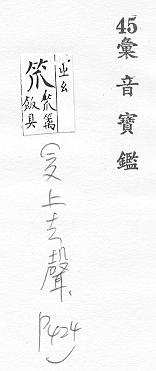 45彙音寶鑑
䒑么
笊
笊篱
飯具
(爻上去聲, P424)